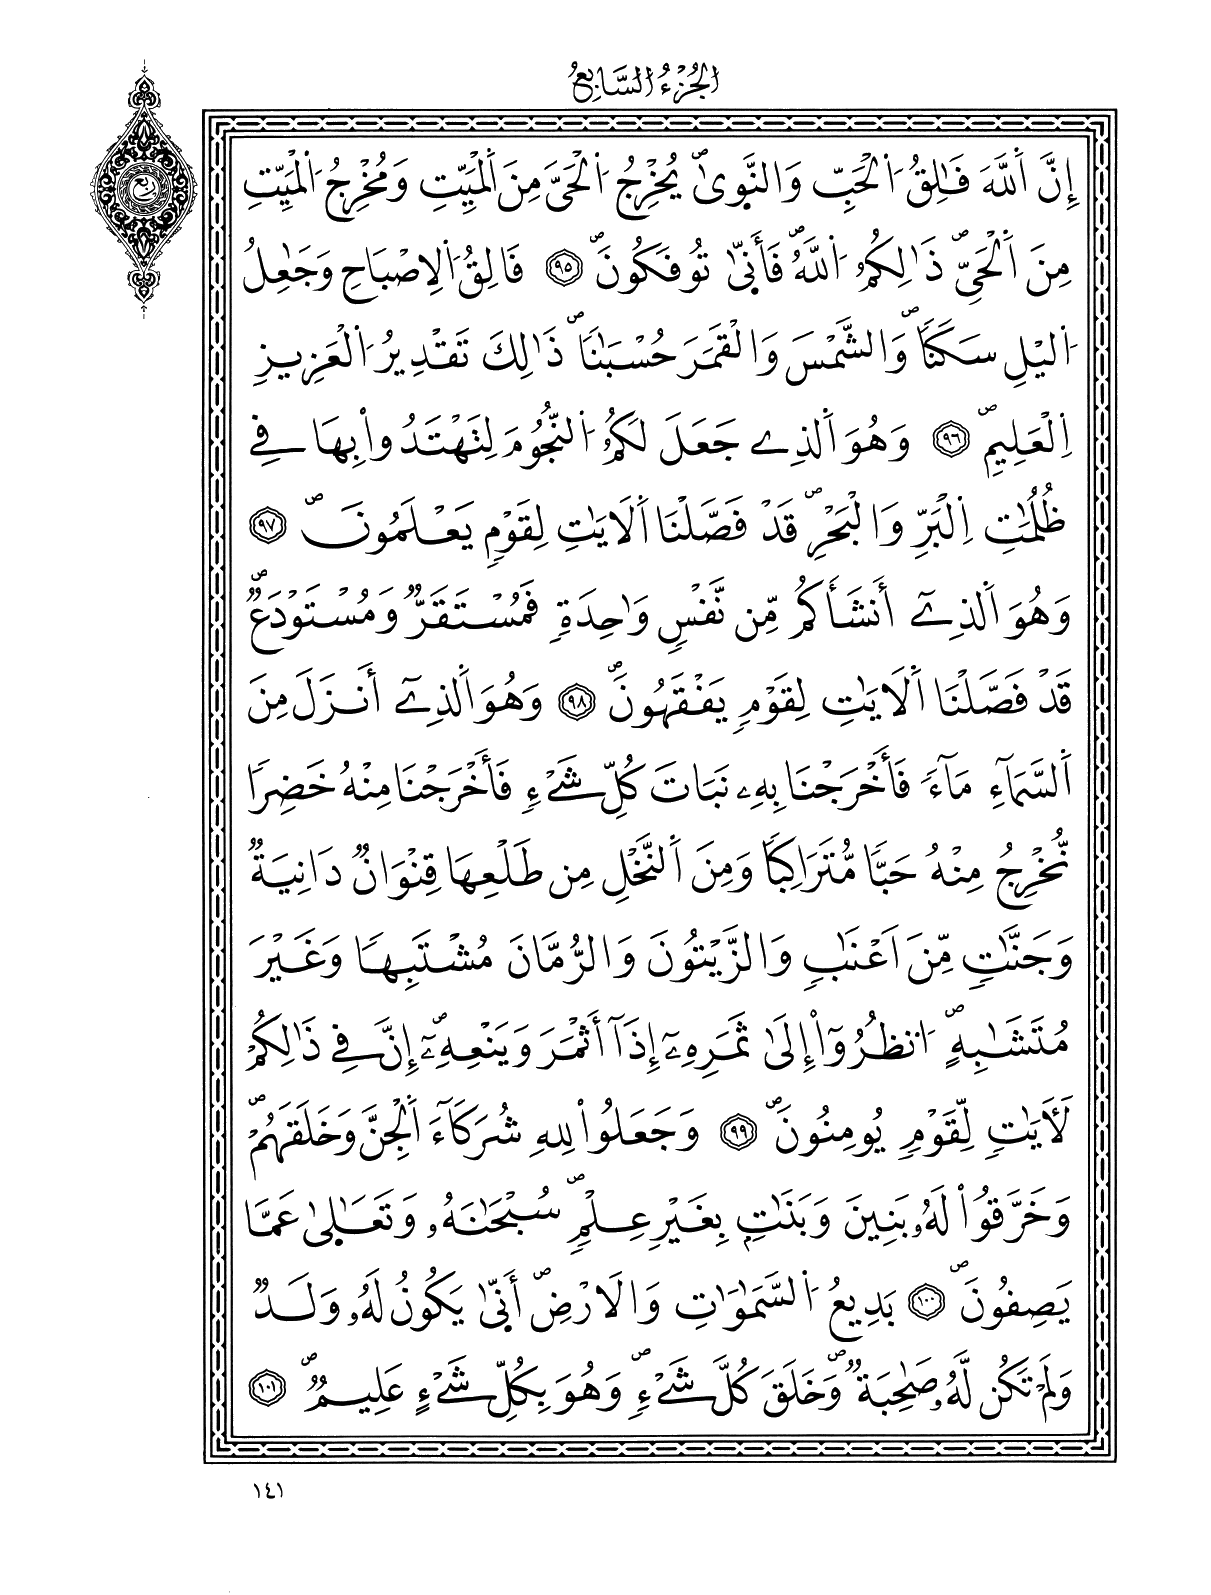 الجزء السابع
ربع
إِنَّ اَ۬للَّهَ فَٰلِقُ اُ۬لْحَبِّ وَالنَّوَىٰۖ يُخْرِجُ اُ۬لْحَيَّ مِنَ اَ۬لْمَيِّتِ وَمُخْرِجُ اُ۬لْمَيِّتِ
مِنَ اَ۬لْحَيِّۖ ذَٰلِكُمُ اُ۬للَّهُۖ فَأَنّ۪ىٰ تُوفَكُونَۖ ۝٩٥ فَالِقُ اُ۬لِاصْبَاحِ وَجَٰعِلُ
اُ۬ليْلِ سَكَناٗۖ وَالشَّمْسَ وَالْقَمَرَ حُسْبَٰناٗۖ ذَٰلِكَ تَقْدِيرُ اُ۬لْعَزِيزِ
اِ۬لْعَلِيمِۖ ۝٩٦ وَهُوَ اَ۬لذِے جَعَلَ لَكُمُ اُ۬لنُّجُومَ لِتَهْتَدُواْ بِهَا فِے
ظُلُمَٰتِ اِ۬لْبَرِّ وَالْبَحْرِۖ قَدْ فَصَّلْنَا اَ۬لَايَٰتِ لِقَوْمٖ يَعْلَمُونَۖ ۝٩٧
وَهُوَ اَ۬لذِےٓ أَنشَأَكُم مِّن نَّفْسٖ وَٰحِدَةٖ فَمُسْتَقَرّٞ وَمُسْتَوْدَعٞۖ
قَدْ فَصَّلْنَا اَ۬لَايَٰتِ لِقَوْمٖ يَفْقَهُونَۖ ۝٩٨ وَهُوَ اَ۬لذِےٓ أَنزَلَ مِنَ
اَ۬لسَّمَآءِ مَآءٗ فَأَخْرَجْنَا بِهِۦ نَبَاتَ كُلِّ شَےْءٖ فَأَخْرَجْنَا مِنْهُ خَضِراٗ
نُّخْرِجُ مِنْهُ حَبّاٗ مُّتَرَاكِباٗ وَمِنَ اَ۬لنَّخْلِ مِن طَلْعِهَا قِنْوَانٞ دَانِيَةٞ
وَجَنَّٰتٖ مِّنَ اَعْنَٰبٖ وَالزَّيْتُونَ وَالرُّمَّانَ مُشْتَبِهاٗ وَغَيْرَ
مُتَشَٰبِهٍۖ اُ۟نظُرُوٓاْ إِلَىٰ ثَمَرِهِۦٓ إِذَآ أَثْمَرَ وَيَنْعِهِۦٓۖ إِنَّ فِے ذَٰلِكُمْ
لَأٓيَٰتٖ لِّقَوْمٖ يُومِنُونَۖ ۝٩٩ وَجَعَلُواْ لِلهِ شُرَكَآءَ اَ۬لْجِنَّ وَخَلَقَهُمْۖ
وَخَرَّقُواْ لَهُۥ بَنِينَ وَبَنَٰتِۢ بِغَيْرِ عِلْمٖۖ سُبْحَٰنَهُۥ وَتَعَٰل۪ىٰ عَمَّا
يَصِفُونَۖ ۝١٠٠ بَدِيعُ اُ۬لسَّمَٰوَٰتِ وَالَارْضِۖ أَنّ۪ىٰ يَكُونُ لَهُۥ وَلَدٞ
وَلَمْ تَكُن لَّهُۥ صَٰحِبَةٞۖ وَخَلَقَ كُلَّ شَےْءٖۖ وَهُوَ بِكُلِّ شَےْءٍ عَلِيمٞۖ ۝١٠١
١٤١